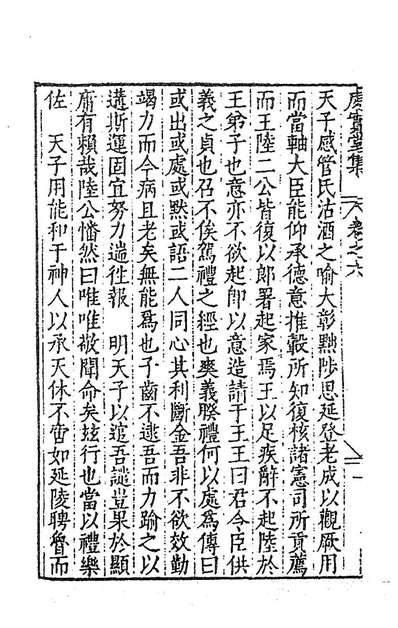 集 卷之六
天子感管氏沽酒之喻大彰黜陟思延登老成以觀厥用
而當軸大臣能仰承德意推轂所知復核諸憲司所貢薦
而王陸二公皆復以郎署起家焉王以足疾辭不起陸於
王弟子也意亦不欲起即以意造請于王王曰君令臣供
義之貞也召不俟駕禮之經也爽義睽禮何以處為傳曰
或出或處或默或語二人同心其利斷金吾非不欲效勤
竭力而今病且老矣無能為也子齒不逮吾而力踰之以
遘斯運固宜努力遄徃報 明天子以逭吾譴豈果於顯
庸有賴哉陸公憣然曰唯唯敬聞命矣玆行也當以禮樂
佐 天子用能和于神人以承天休不啻如延陵聘魯而